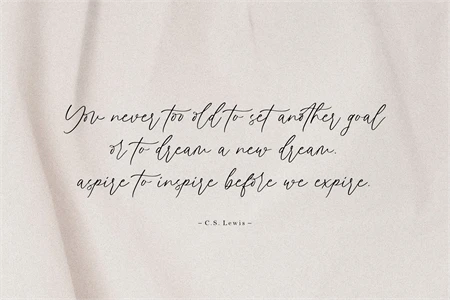 You never too old to set another goal
or to dream a new dream.
aspire to inspire before we expire.
– C.S. Lewis –